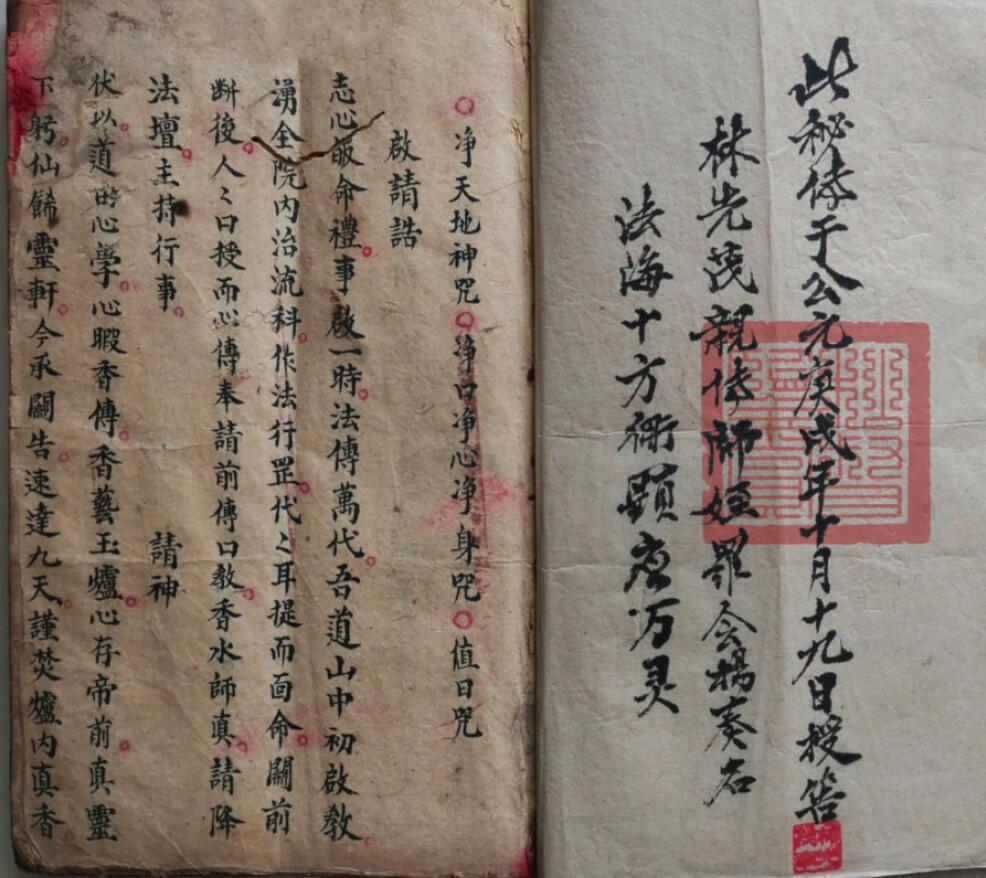 此秘傳于公元庚戌年十月十九日授箓
林先茂親傳師姪罪会楊奏名
法海十方術顕應万灵
净天地神咒 净口净心净身咒 值日咒
啟請誥
志心皈命禮事啟一時法傳萬代吾道山中初啟教
湧全院内治流科作法行罡代〻耳提而面命闢前
断後人〻口授而心傳奉請前傳口教香水師真請降
法壇主持行事 請神
伏以道由心學心暇香傳香藝玉爐心存帝前真靈
下躬仙斾靈軒今承關告速達九天謹焚爐内真香